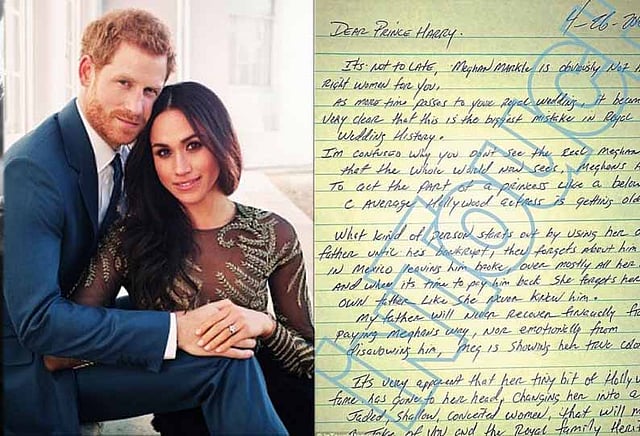 4-26-20
DEAR PRINCE HARRY.
IT'S NOT TO LATE, MEGHAN MARKLE IS OBVIOUSLY NOT
RIGHT WOMEN FOR YOU.
AS MORE TIME PASSES TO YOUR ROYAL WEDDING, IT BECAM
VERY CLEAR THAT THIS IS THE BIGGEST MISTAKE IN ROYAL
WEDDING HISTORY.
I'M CONFUSED WHY YOU DON'T SEE THE REAL MEGHAN
THAT THE WHOLE WORLD NOW SEES. MEGHAN'S A
TO ACT THE PART OF A PRINCESS LIKE A BELOW
C AVERAGE HOLLYWOOD ACTRESS IS GETTING OLD
WHAT KIND OF PERSON STARTS OUT BY USING HER O
FATHER UNTIL HE'S BANKRUPT, THEN FORGETS ABOUT HIM
IN MEXICO LEAVING HIM BROKE OVER MOSTLY ALL HER
AND WHEN IT'S TIME TO PAY HIM BACK SHE FORGETS HER
OWN FATHER LIKE SHE NEVER KNEW HIM.
MY FATHER WILL NEVER RECOVER FINICIALLY FROM
PAYING MEGHAN'S WAY, NOR EMOTIONALLY FROM
DISAVOWING HIM, MEG IS SHOWING HER TRUE COLO
IT'S VERY APPARENT THAT HER TINY BIT OF HOLLYW
FAME HAS GONE TO HER HEAD, CHANGING HER INTO A
JADED, SHALLOW, CONCEITED WOMEN, THAT WILL M
A JOKE OF YOU AND THE ROYAL FAMILY HERIT
InTouch